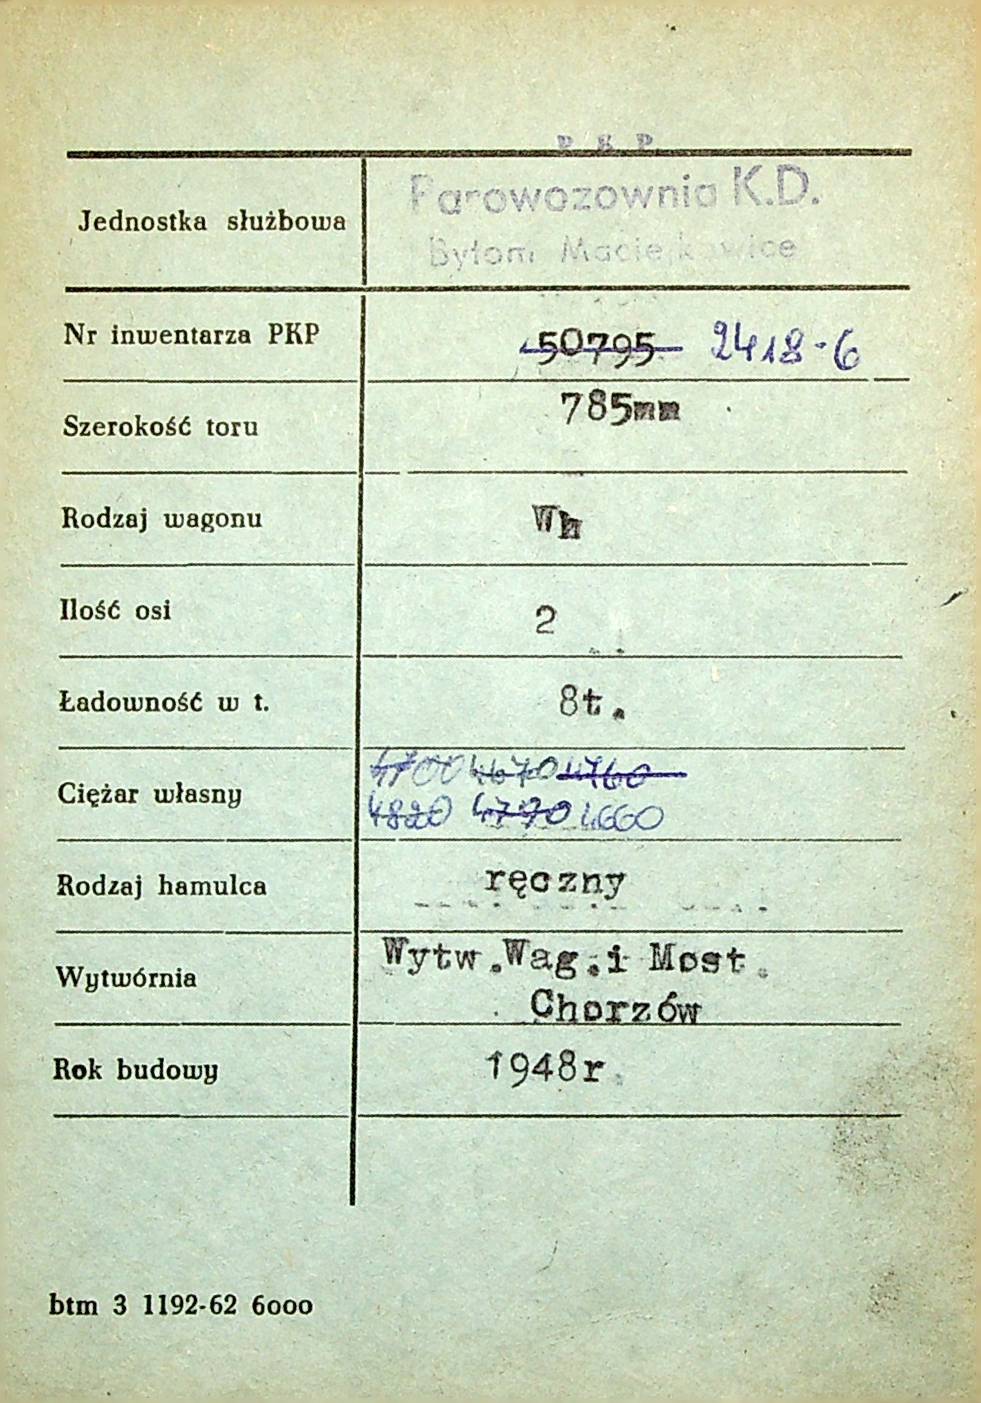 P K P
Parowozownia K.D.
Jednostka służbowa
Bytom Maciejkowice
Nr inwentarza PKP 50795 2418-6
785mm
Szerokość toru
Rodzaj wagonu Wh
Ilość osi 2
Ładowność w t. 8t.
4700 4670 4760
Ciężar własny
4820 4790 4660
Rodzaj hamulca ręczny
Wytw.Wag.i Most.
Wytwórnia
Chorzów
Rok budowy 1948r
btm 3 1192-62 6000